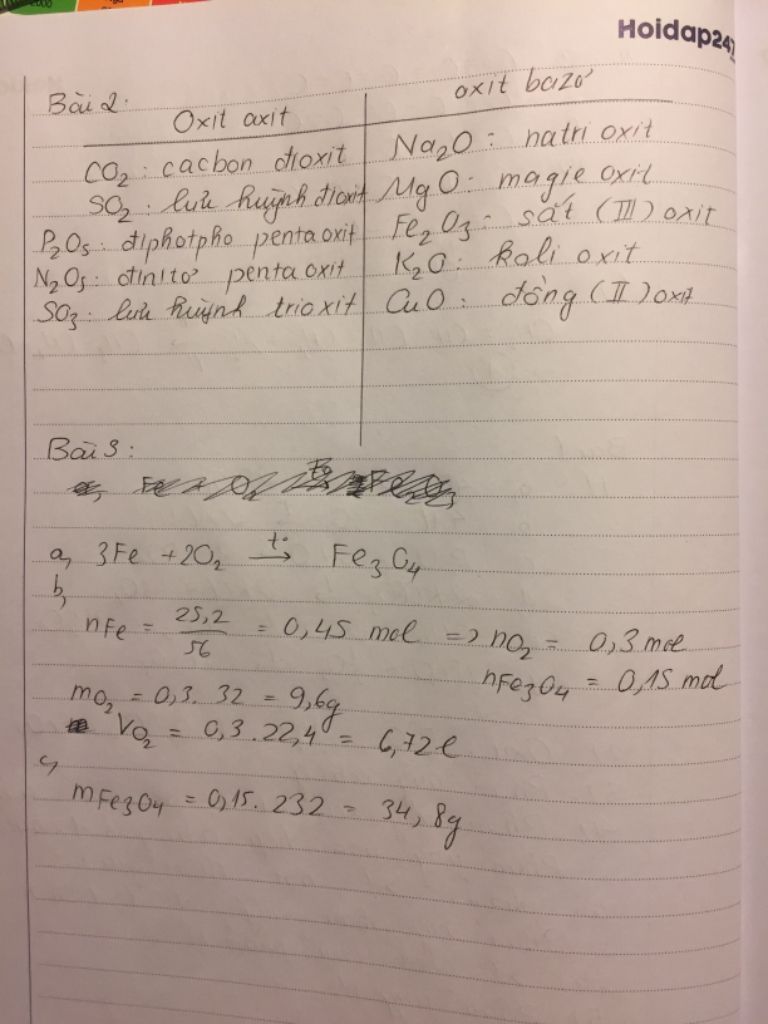 Hoidap247
Bài 2:
Oxit axit
oxit bazơ
CO2 : cacbon đioxit
Na2O : natri oxit
SO2 : lưu huỳnh đioxit
MgO : magie oxit
P2O5 : điphotpho pentaoxit
Fe2O3 : sắt (III) oxit
N2O5 : đinitơ pentaoxit
K2O : kali oxit
SO3 : lưu huỳnh trioxit
CuO : đồng (II) oxit
Bài 3 :
a, 3Fe + 2O2 t° → Fe3O4
b,
nFe = 25,2/56 = 0,45 mol => nO2 = 0,3 mol
nFe3O4 = 0,15 mol
mO2 = 0,3. 32 = 9,6g
VO2 = 0,3 . 22,4 = 6,72l
c,
mFe3O4 = 0,15. 232 = 34,8g